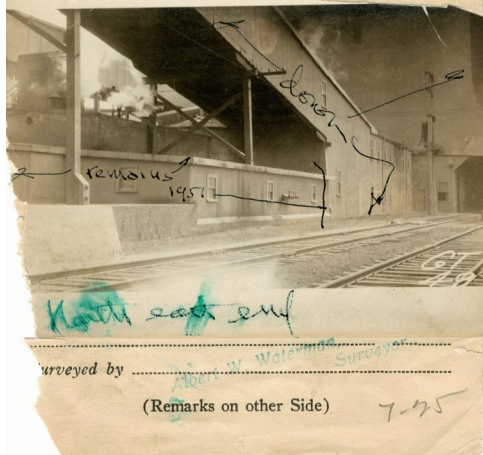 remains
1951
North east end
Surveyed by
Albert W. Waterman,
Surveyor.
(Remarks on other Side)
7-25